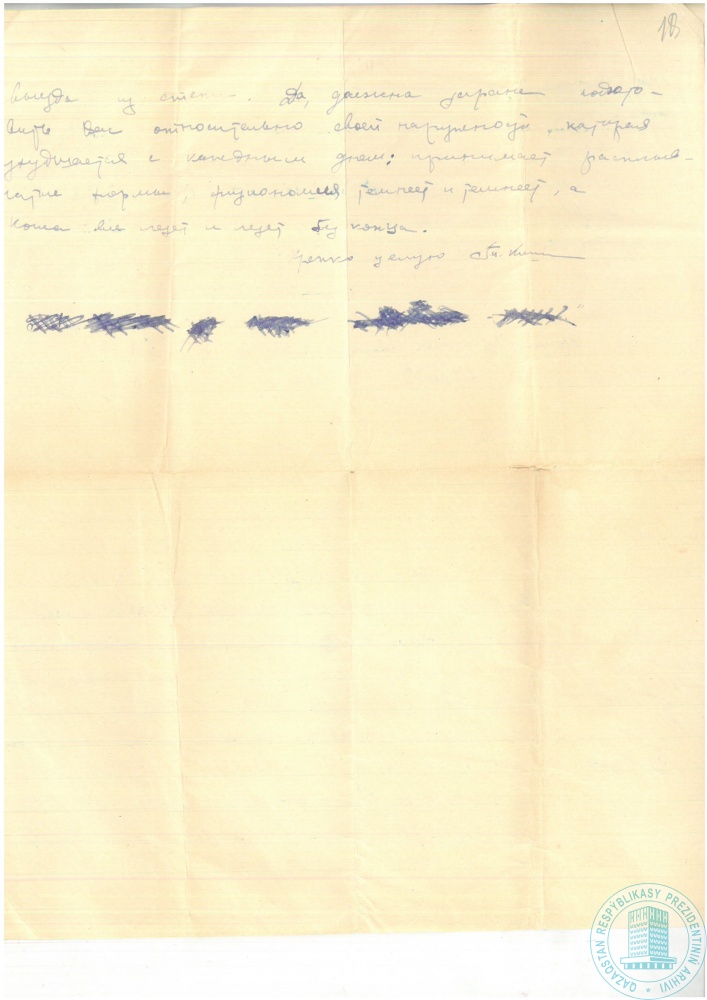 18
выезда из степи. Да, должна заранее подгото-
вить Вас относительно своей наружности, которая
ухудшается с каждым днем: принимает расплыв-
чатые формы, физиономия темнеет и темнеет, а
кожа все лезет и лезет без конца.
Крепко целую
QAZAQSTAN RESPÝBLIKASY PREZIDENTINIŃ ARHIVI